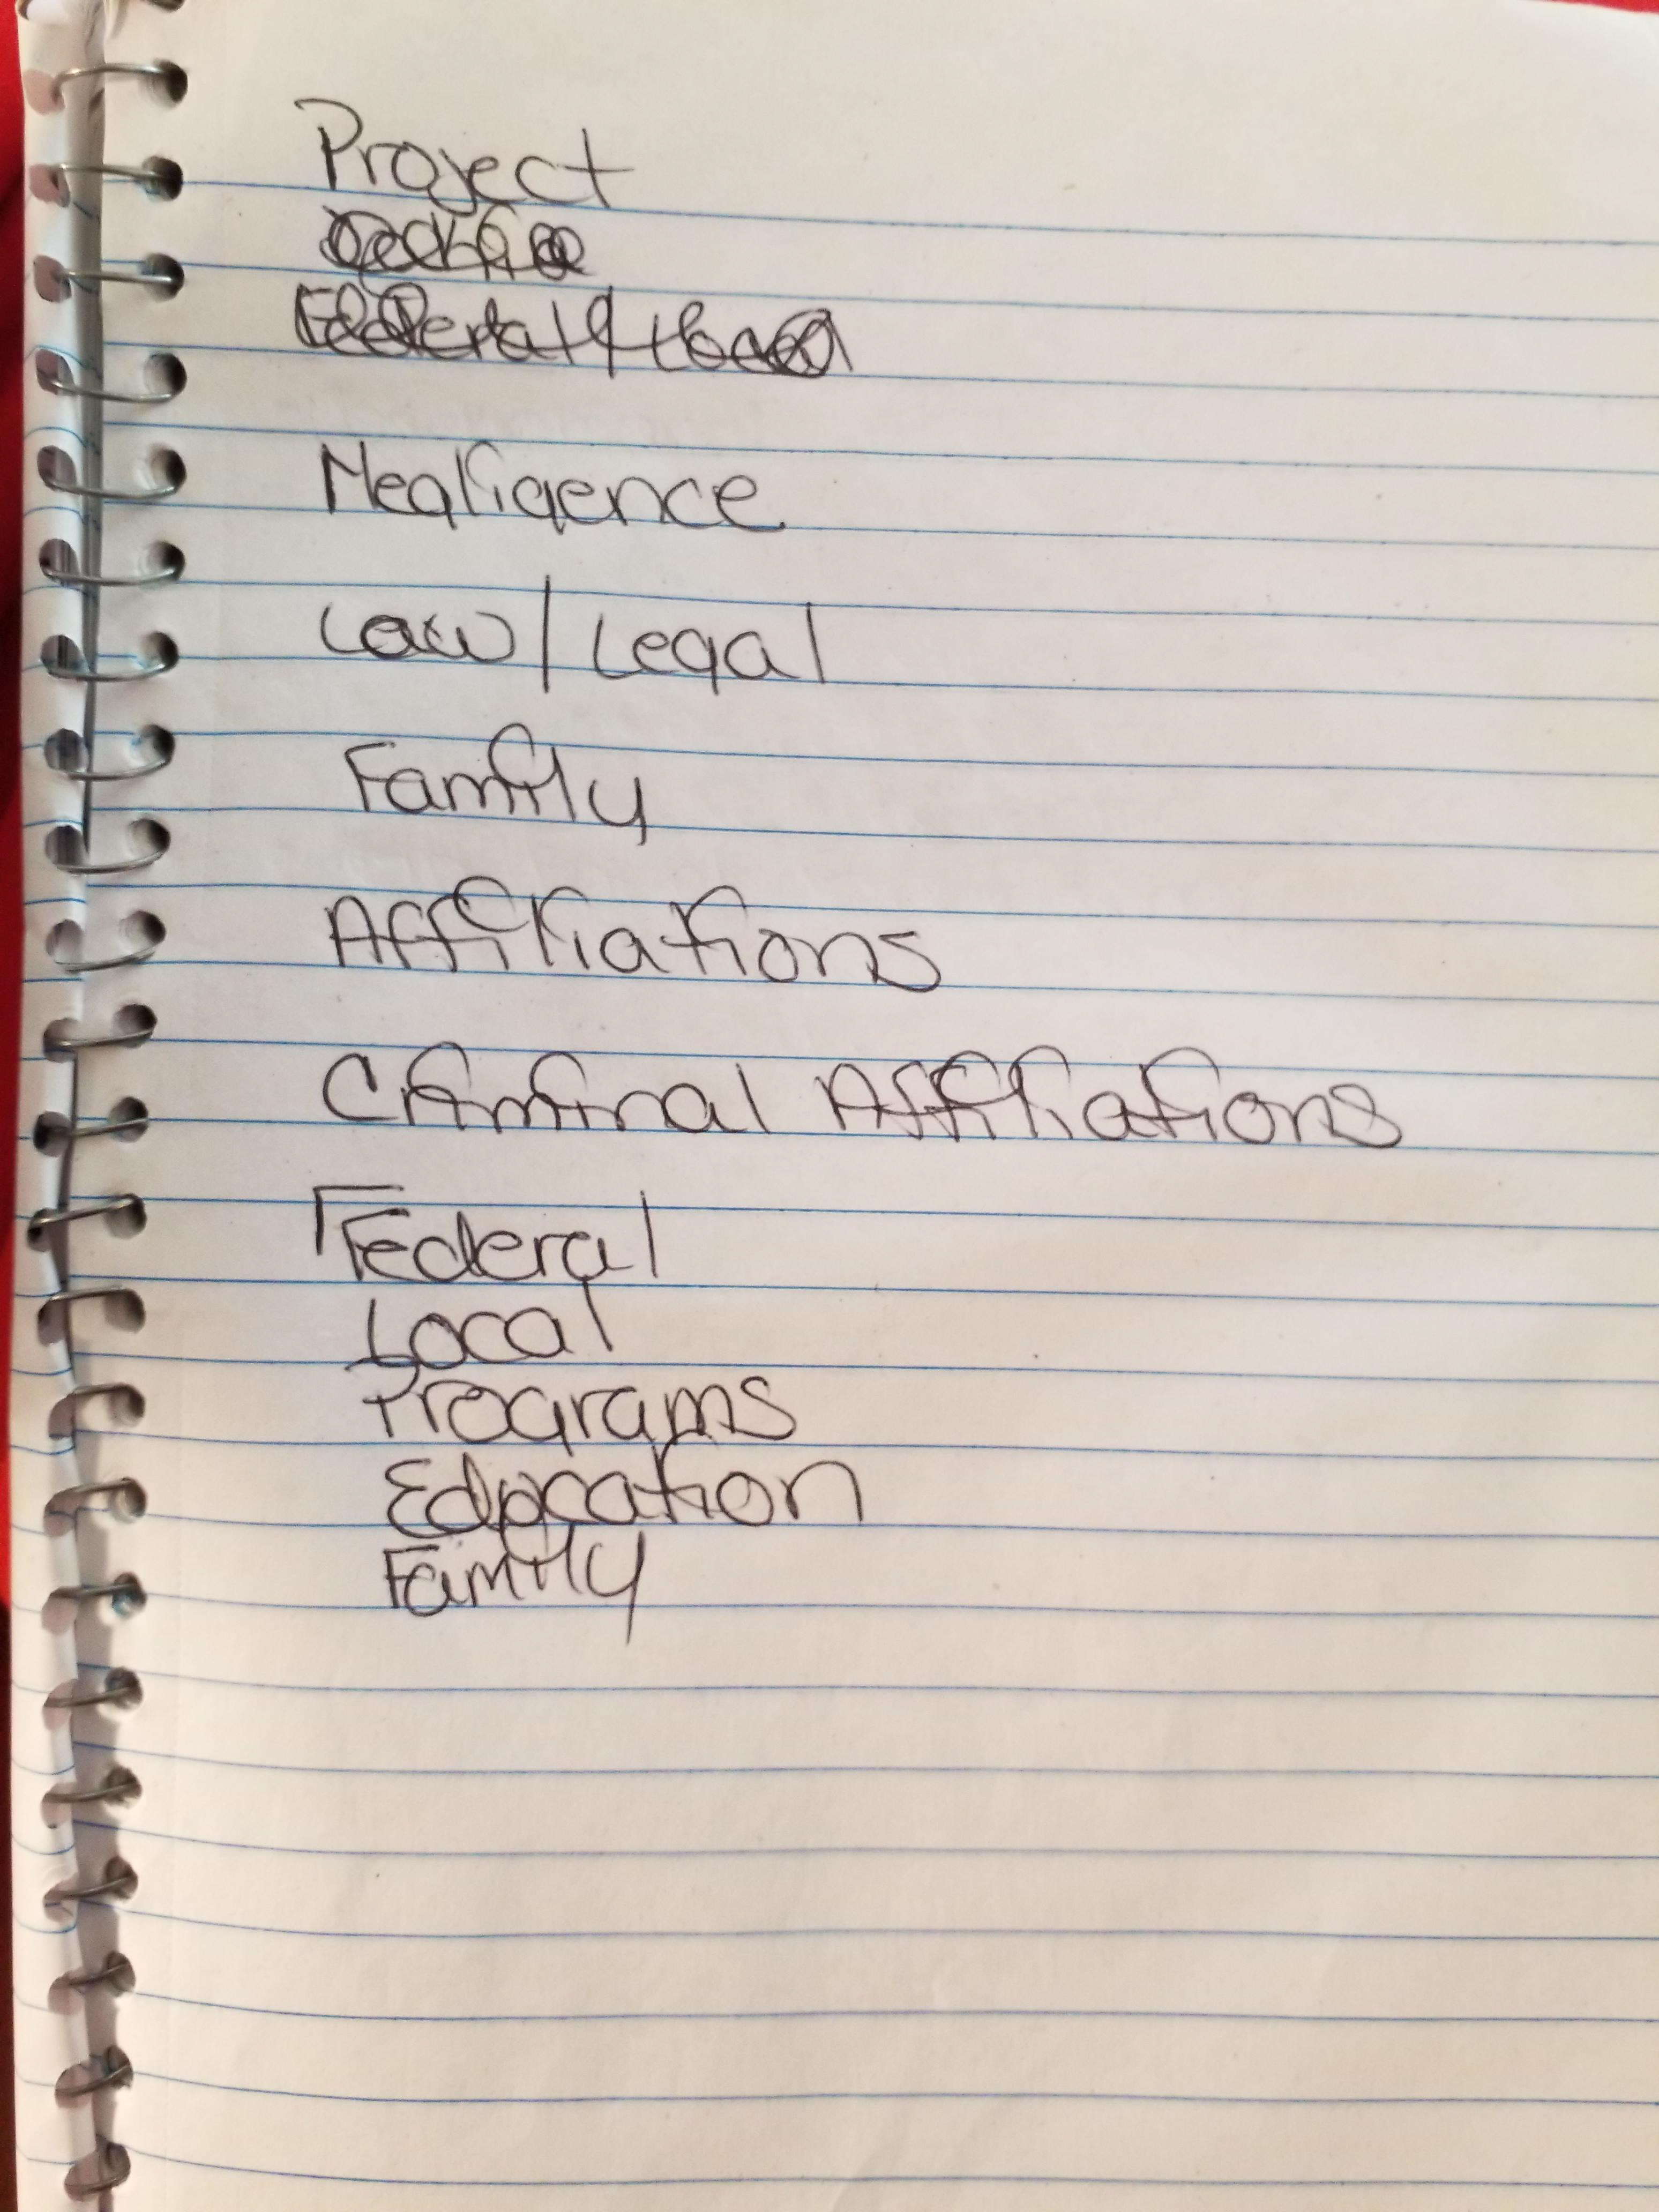 Project
Negligence
Law/Legal
Family
Affiliations
Criminal Affiliations
Federal
Local
Programs
Education
Family